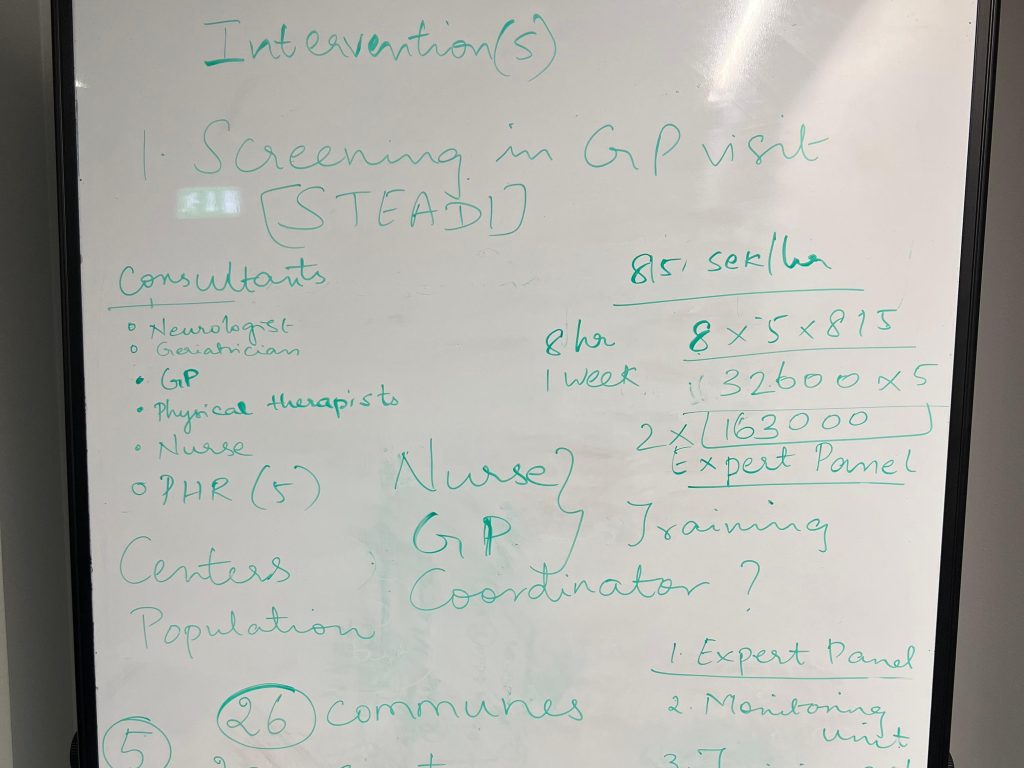 Intervention(s)
1. Screening in GP visit
[STEADI]
Consultants
Neurologist
Geriatrician
GP
Physical therapists
Nurse
PHR (5)
Centers
Population
815 sek/hr
8 hr 8 x 5 x 815
1 week 32600 x 5
2 x 163000
Expert Panel
Nurse
GP } Training
Coordinator ?
26 communes
5
1. Expert Panel
2. Monitoring
unit